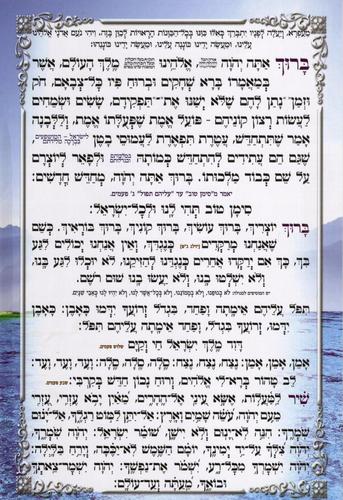 בָּרוּךְ אַתָּה יְהֹוָה, אֱלֹהֵינוּ מֶלֶךְ הָעוֹלָם, אֲשֶׁר
בְּמַאֲמָרוֹ בָּרָא שְׁחָקִים וּבְרוּחַ פִּיו כָּל־צְבָאָם, חֹק
וּזְמַן־נָתַן לָהֶם שֶׁלֹּא יְשַׁנּוּ אֶת־תַּפְקִידָם, שָׂשִׂים וּשְׂמֵחִים
לַעֲשׂוֹת רְצוֹן קוֹנֵיהֶם - פּוֹעֵל אֱמֶת שֶׁפְּעֻלָּתוֹ אֱמֶת, וְלַלְּבָנָה
אָמַר שֶׁתִּתְחַדֵּשׁ, עֲטֶרֶת תִּפְאֶרֶת לַעֲמוּסֵי בֶטֶן
שֶׁגַּם הֵם עֲתִידִים לְהִתְחַדֵּשׁ כְּמוֹתָהּ וּלְפָאֵר לְיוֹצְרָם
עַל שֵׁם כְּבוֹד מַלְכוּתוֹ. בָּרוּךְ אַתָּה יְהֹוָה, מְחַדֵּשׁ חֳדָשִׁים:
יאמר מ"סימן טוב" עד "עליהם תפול" ג' פעמים.
סִימָן טוֹב תְּהִי לָנוּ וּלְכָל־יִשְׂרָאֵל:
בָּרוּךְ יוֹצְרִיךְ, בָּרוּךְ עוֹשִׂיךְ, בָּרוּךְ קוֹנִיךְ, בָּרוּךְ בּוֹרְאִיךְ. כְּשֵׁם
שֶׁאֲנַחְנוּ מְרַקְּדִים כְּנֶגְדֵּךְ, וְאֵין אֲנַחְנוּ יְכוֹלִים לִגַּע
בִּיךְ, כָּךְ אִם יְרַקְּדוּ אֲחֵרִים כְּנֶגְדֵּנוּ לְהַזִּיקֵנוּ, לֹא יוּכְלוּ לִגַּע בָּנוּ,
וְלֹא יִשְׁלְטוּ בָנוּ, וְלֹא יַעֲשׂוּ בָנוּ שׁוּם רֹשֶׁם.
תִּפֹּל עֲלֵיהֶם אֵימָתָה וָפַחַד, בִּגְדֹל זְרוֹעֲךָ יִדְּמוּ כָּאָבֶן: כָּאָבֶן
יִדְּמוּ, זְרוֹעֲךָ בִּגְדֹל, וָפַחַד אֵימָתָה עֲלֵיהֶם תִּפֹּל:
דָּוִד מֶלֶךְ יִשְׂרָאֵל חַי וְקַיָּם שלוש פעמים.
אָמֵן, אָמֵן, אָמֵן: נֶצַח, נֶצַח, נֶצַח: סֶלָה, סֶלָה, סֶלָה: וָעֶד, וָעֶד, וָעֶד:
לֵב טָהוֹר בְּרָא־לִי אֱלֹהִים, וְרוּחַ נָכוֹן חַדֵּשׁ בְּקִרְבִּי: שבע פעמים.
שִׁיר לַמַּעֲלוֹת, אֶשָּׂא עֵינַי אֶל־הֶהָרִים, מֵאַיִן יָבֹא עֶזְרִי, עֶזְרִי
מֵעִם יְהֹוָה, עֹשֵׂה שָׁמַיִם וָאָרֶץ: אַל־יִתֵּן לַמּוֹט רַגְלֶךָ, אַל־יָנוּם
שֹׁמְרֶךָ: הִנֵּה לֹא־יָנוּם וְלֹא יִישָׁן, שׁוֹמֵר יִשְׂרָאֵל: יְהֹוָה שֹׁמְרֶךָ,
יְהֹוָה צִלְּךָ עַל־יַד יְמִינֶךָ, יוֹמָם הַשֶּׁמֶשׁ לֹא־יַכֶּכָּה, וְיָרֵחַ בַּלָּיְלָה:
יְהֹוָה יִשְׁמָרְךָ מִכָּל־רָע, יִשְׁמֹר אֶת־נַפְשֶׁךָ: יְהֹוָה יִשְׁמָר־צֵאתְךָ
וּבוֹאֶךָ, מֵעַתָּה וְעַד־עוֹלָם: